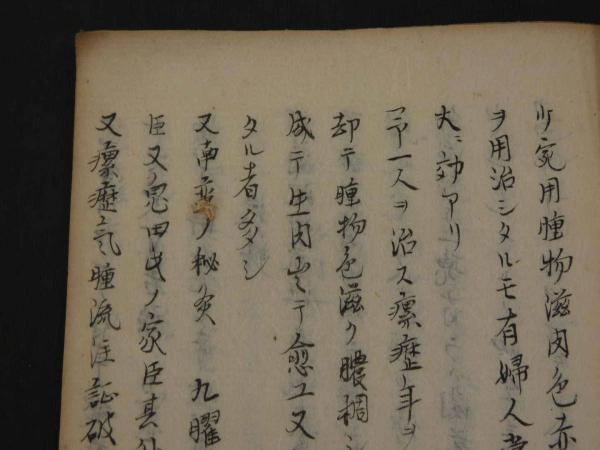 少宛用腫物滋肉色赤
ヲ用治シタルモ有婦人
大ニ効アリ
一人ヲ治ス瘰癧年ヲ
却テ腫物色滋ク膿稠
成テ生肉シテ愈ユ又
タル者多シ
又南蛮ノ秘灸 九曜
臣又鬼田氏ノ家臣其外
又瘰癧気腫流注証破